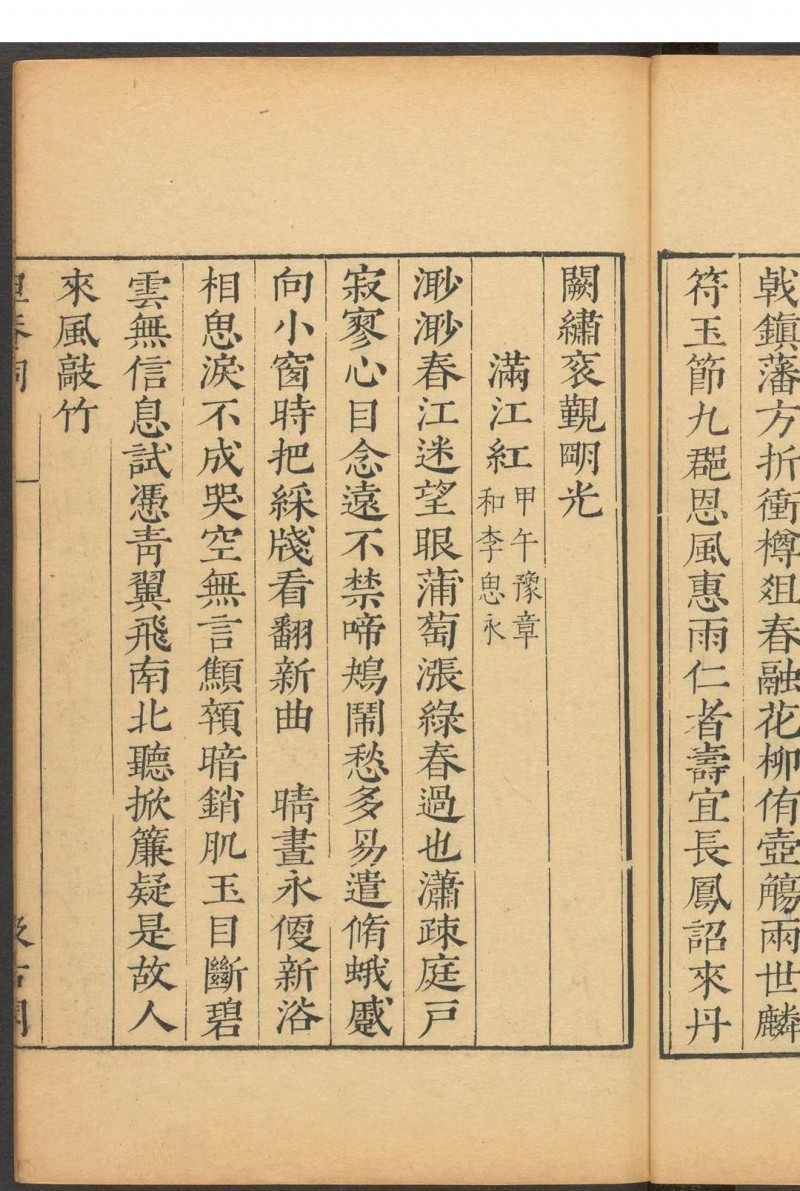 戟鎮藩方折衝樽爼春融花柳侑壺觴兩世麟
符玉節九郡恩風惠雨仁者壽宜長鳳詔來丹
闕繡衮覲明光
滿江紅
甲午豫章
和李思永
渺渺春江迷望眼蒲萄漲綠春過也瀟疎庭戸
寂寥心目念遠不禁啼鴂鬧愁多昜遣脩蛾蹙
向小窗時把綵牋看翻新曲　晴晝永偃新浴
相思淚不成哭空無言顦顇暗銷肌玉目斷碧
雲無信息試憑青翼飛南北聽掀簾疑是故人
來風敲竹